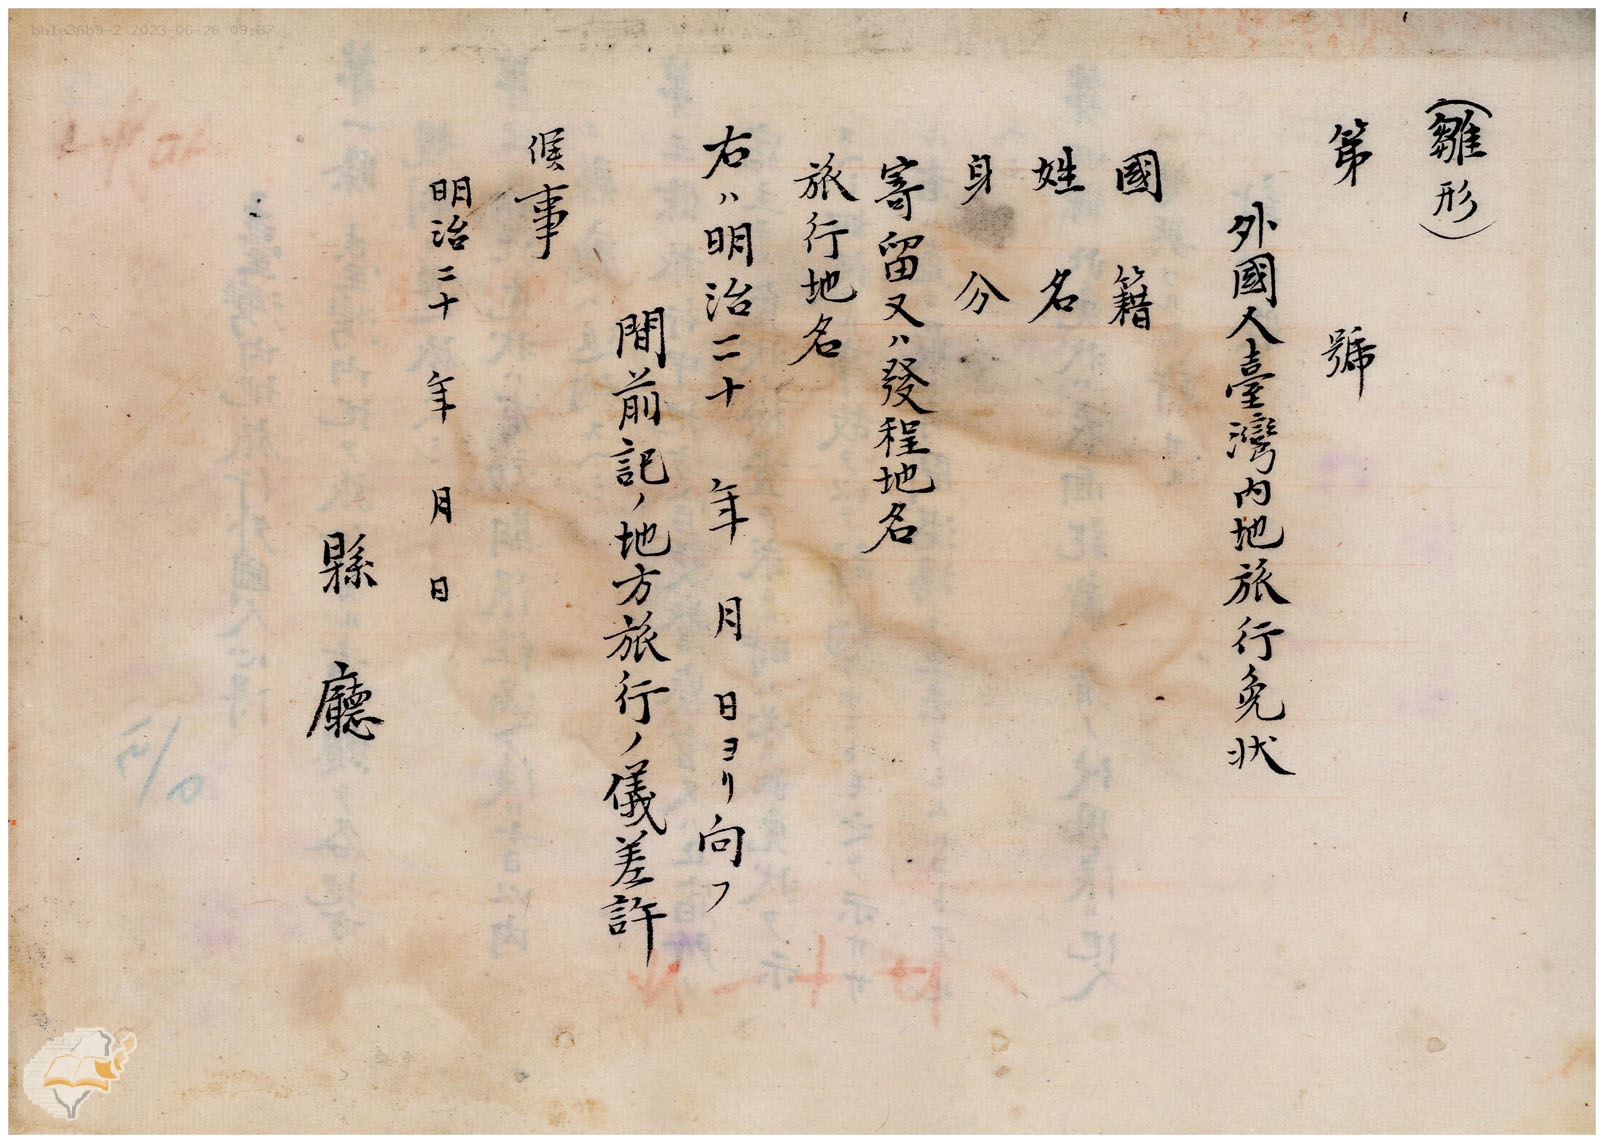 （雛形）
第　號
外國人臺灣內地旅行免狀
國　籍
姓　名
身　分
寄留又ハ發程地名
旅行地名
右ハ明治二十　年　月　日ヨリ向フ
間前記ノ地方旅行ノ儀差許
候事
明治二十　年　月　日
縣　廳
bb1e36b9-2 2023-06-26 09:57